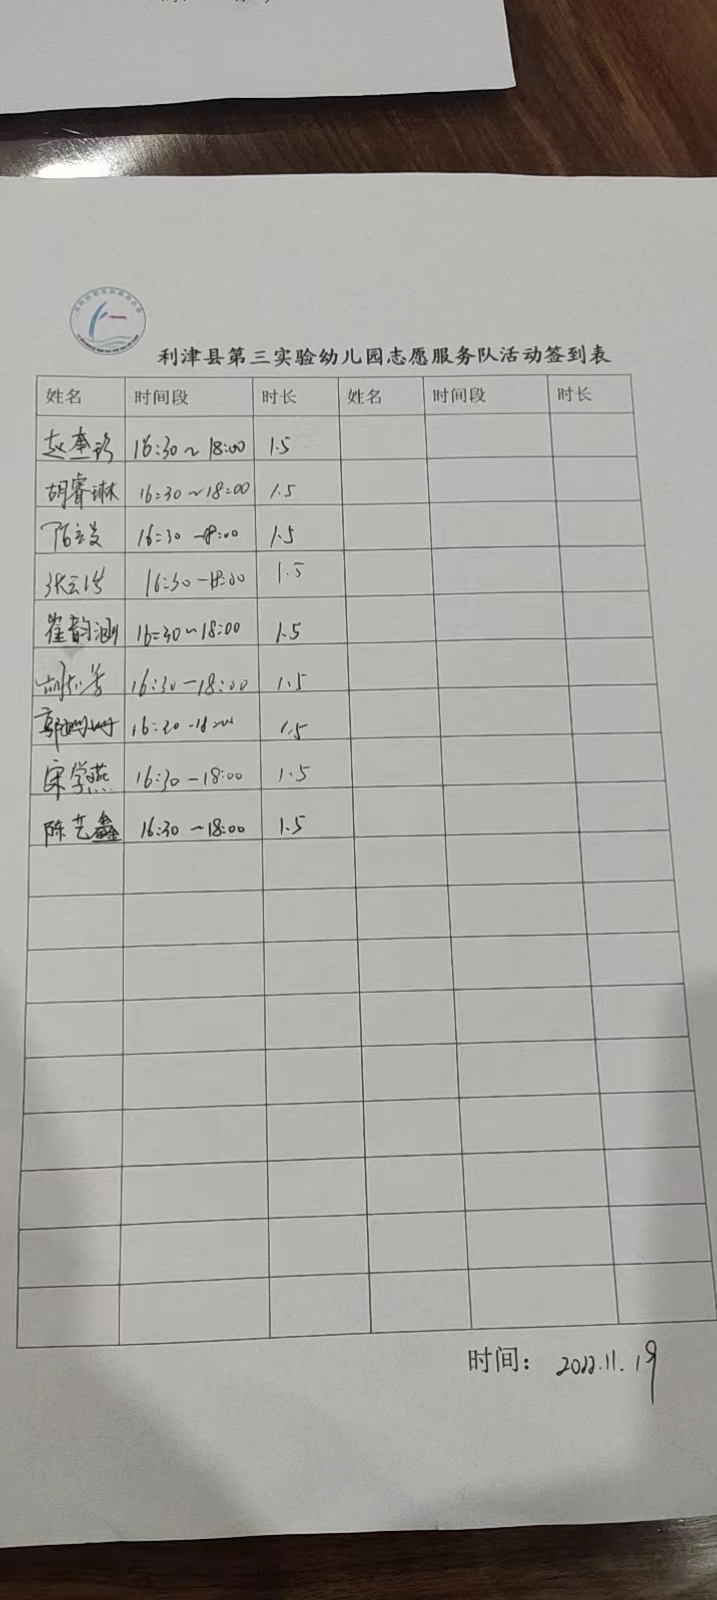 利津县第三实验幼儿园志愿服务队活动签到表
姓名 时间段 时长 姓名 时间段 时长
16:30~18:00 1.5
胡睿琳 16:30~18:00 1.5
16:30-18:00 1.5
16:30-18:00 1.5
崔韵涵 16:30~18:00 1.5
16:30-18:00 1.5
16:30-18:00 1.5
宋学燕 16:30-18:00 1.5
陈艺鑫 16:30~18:00 1.5
时间： 2022.11.19